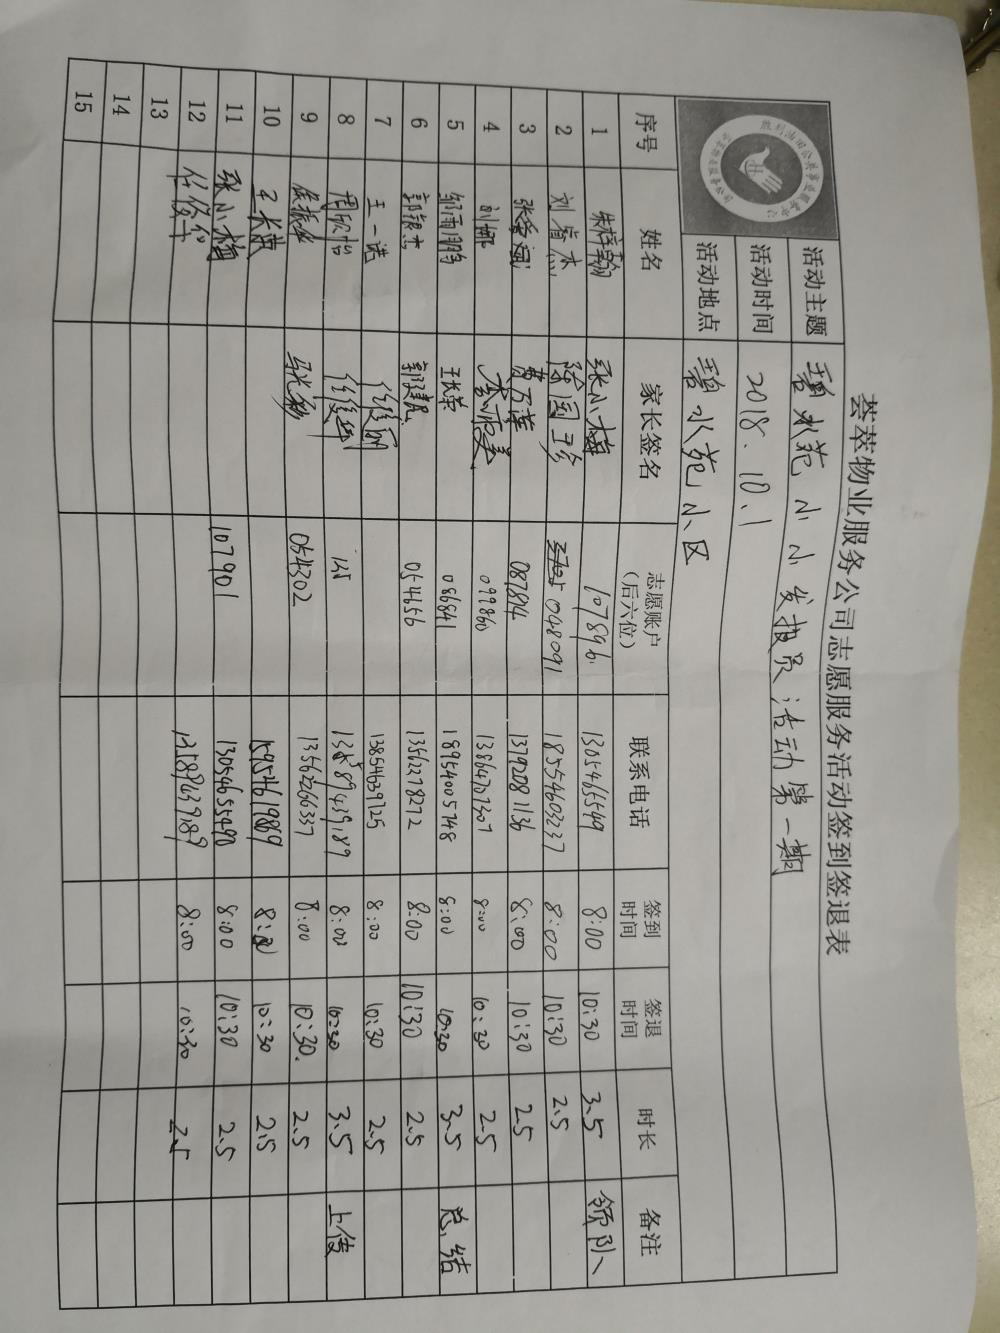 荟萃物业服务公司志愿服务活动签到签退表
胜利油田公共事业服务中心
活动主题 碧水苑小小发报员活动第一期
活动时间 2018.10.1
活动地点 碧水苑小区
序号 姓名 家长签名 志愿账户（后六位） 联系电话 签到时间 签退时间 时长 备注
1 朱梓翰 张小梅 107896 13054655449 8:00 10:30 3.5 领队
2 刘睿杰 除国卫珍 048091 18554603237 8:00 10:30 2.5
3 087814 13792081136 8:00 10:30 2.5
4 刘娜 099860 13864707307 8:00 10:30 2.5
5 邹雨鹏 王长荣 086841 18954005748 8:00 10:30 3.5 总结
6 郭银杰 郭建民 054656 13562278272 8:00 10:30 2.5
7 王一诺 13854639725 8:00 10:30 2.5
8 周欣怡 任俊华 13589439189 8:00 10:30 3.5 上传
9 马光彩 054302 13562266337 8:00 10:30. 2.5
10 王长荣 15954619869 8:00 10:30 2.5
11 张小梅 107901 13054655490 8:00 10:30 2.5
12 任俊华 13589439189 8:00 10:30 2.5
13
14
15